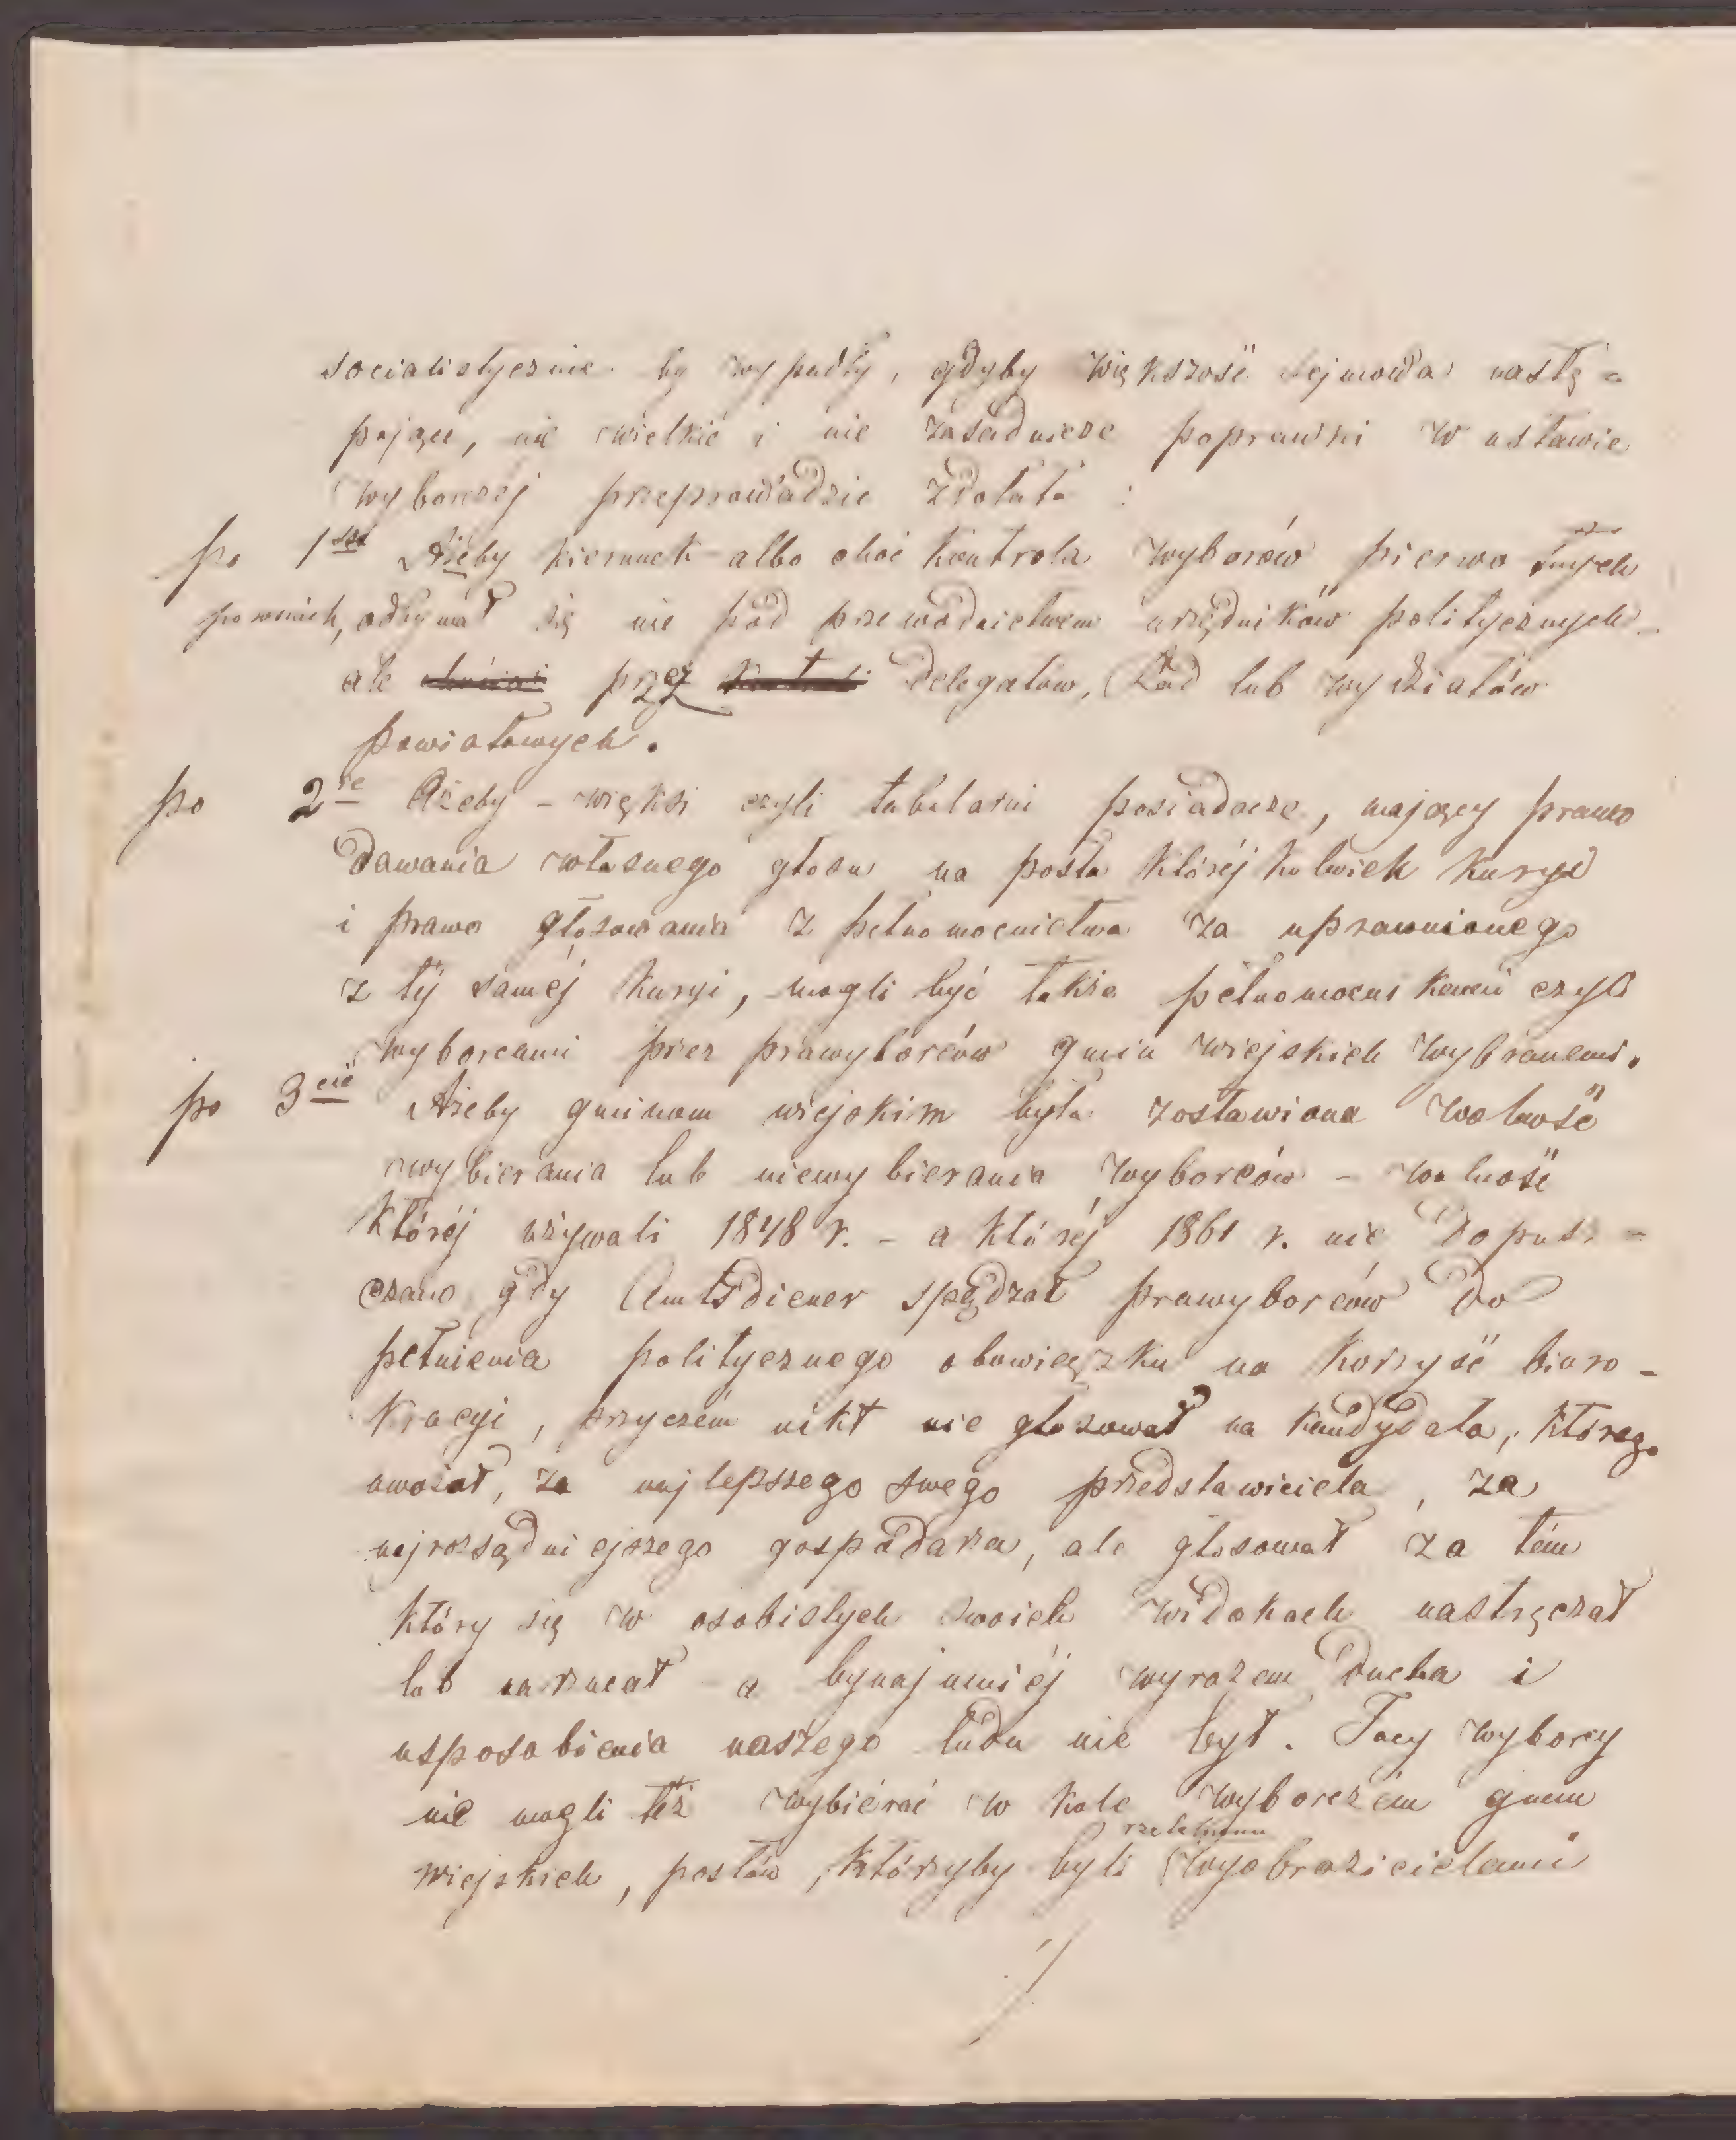 socialistycznie by wypadły, gdyby większość sejmowa nastę=
pujące, nie wielkie i nie zasadnicze poprawki w ustawie
wyborczéj przeprowadzić zdołała :
po 1sze Ażeby kierunek albo choć kontrola wyborów pierwo tnych
odbywał się nie pod przewodnictwem urzędników politycznych
ale przez Delegatów, Rad lub wydziałów
powiatowych.
po 2re Ażeby - więksi czyli tabularni posiadacze, mający prawo
Dawania własnego głosu na posła któréjkolwiek kuryi
i prawo głosowania z pełnomocnictwa za uprawnionego
z téj saméj kuryi, mogli być także pełnomocnikami czyli
wyborcami przez prawyborców gmin wiejskich wybranemi.
po 3cie Ażeby gminom wiejskim była zostawiona wolność
wybierania lub niewybierania wyborców - wolność
któréj używali 1848 r. - a któréj 1861 r. nie Dopusz=
czano gdy Amtsdiener spędzał prawyborców Do
pełnienia politycznego obowiązku na korzyść biuro-
kracyi, przyczém nikt nie głosował na kandydata, którego
uważał, za najlepszego swego przedstawiciela, za
najrozsądniejszego gospodarza, ale głosował za tém
który się w osobistych swoich widokach nastręczał
lub narzucał - a bynajmniéj wyrazem Ducha i
usposobienia naszego ludu nie był. Tacy wyborcy
nie mogli też wybiérać w kole wyborczém gmin
wiejskich, posłów, którzyby byli wyobrazicielami